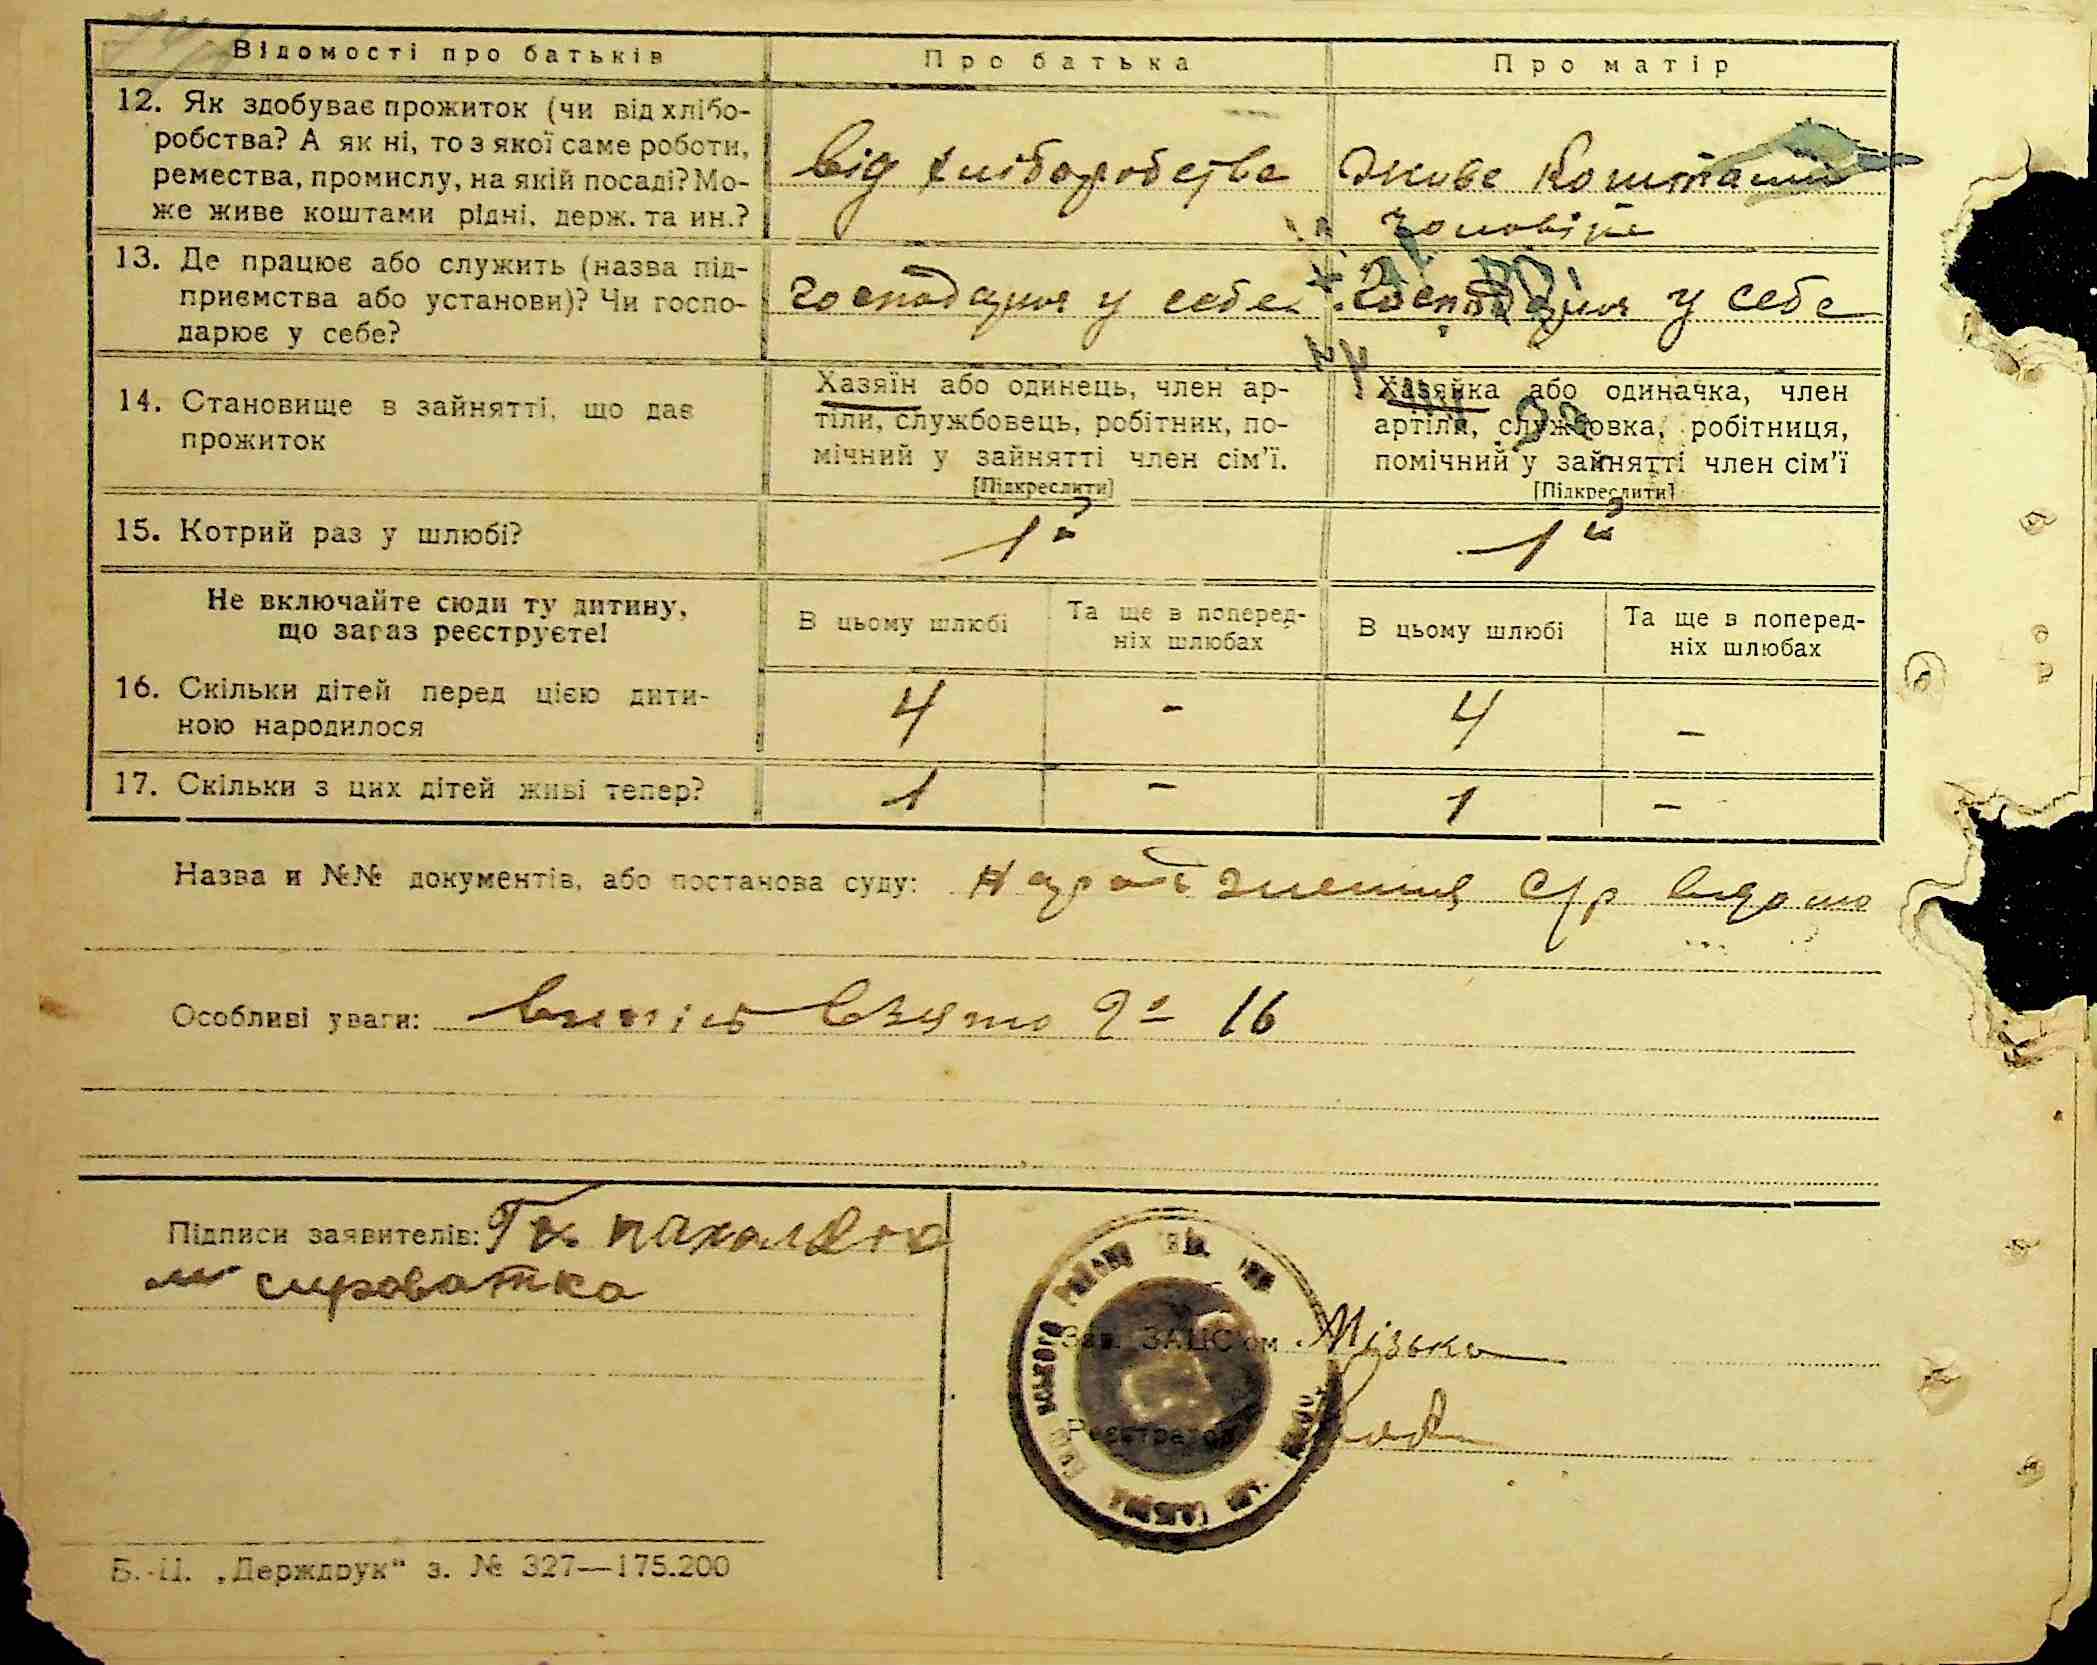 Відомості про батьків
Про батька
Про матір
12. Як здобуває прожиток (чи від хлібо-
робства? А як ні, то з якої саме роботи,
ремества, промислу, на якій посаді? Мо-
же живе коштами рідні, держ. та ин.?
від хліборобства
живе коштами
чоловіка
13. Де працює або служить (назва під-
приємства або установи)? Чи госпо-
дарює у себе?
господарює у себе
господарює у себе
14. Становище в зайнятті, що дає
прожиток
Хазяїн або одинець, член ар-
тіли, службовець, робітник, по-
мічний у зайнятті член сім'ї.
[Підкреслити]
Хазяйка або одиначка, член
артіли, службовка, робітниця,
помічний у зайнятті член сім'ї
[Підкреслити]
15. Котрий раз у шлюбі?
1й
1й
Не включайте сюди ту дитину,
що загаз реєструєте!
В цьому шлюбі
Та ще в поперед-
ніх шлюбах
В цьому шлюбі
Та ще в поперед-
ніх шлюбах
16. Скільки дітей перед цією дити-
ною народилося
4 - 4 -
17. Скільки з цих дітей живі тепер?
1 - 1 -
Назва и №№ документів, або постанова суду: с/р
Особливі уваги: взято 16
Підписи заявителів:
сироватка
Зав. ЗАЦС'ом
Реєстратор
Б.-Ц. „Держдрук" з. № 327—175.200